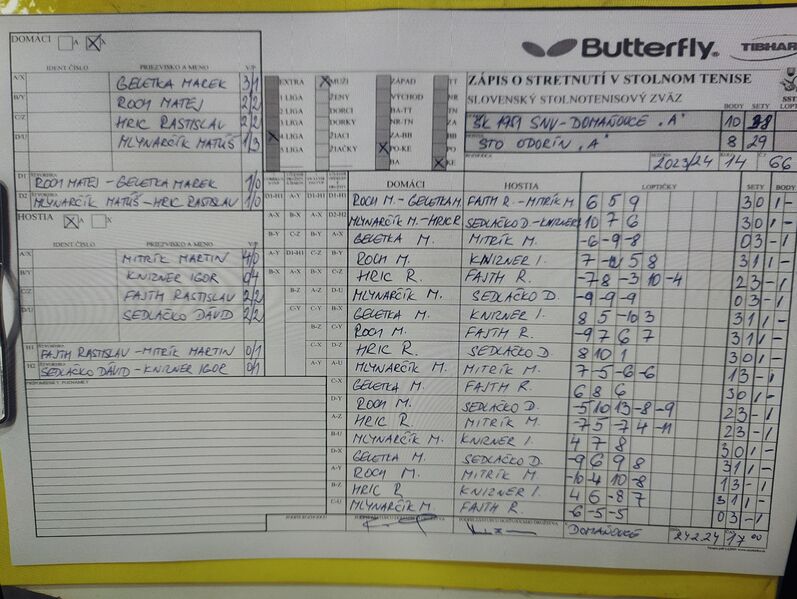 DOMÁCI A X
IDENT. ČÍSLO PRIEZVISKO A MENO V/P
A/X GELETKA MAREK 3/1
B/Y ROCH MATEJ 2/2
C/Z HRIC RASTISLAV 2/2
D/U MLYNARČÍK MATÚŠ 1/3
D1 ŠTVORHRA ROCH MATEJ - GELETKA MAREK 1/0
D2 ŠTVORHRA MLYNARČÍK MATÚŠ - HRIC RASTISLAV 1/0
HOSTIA A X
IDENT. ČÍSLO PRIEZVISKO A MENO V/P
A/X MITRÍK MARTIN 4/0
B/Y KNIZNER IGOR 0/4
C/Z FAJTH RASTISLAV 2/2
D/U SEDLAČKO DÁVID 2/2
H1 ŠTVORHRA FAJTH RASTISLAV - MITRÍK MARTIN 0/1
H2 ŠTVORHRA SEDLAČKO DÁVID - KNIZNER IGOR 0/1
PRIPOMIENKY, POZNÁMKY
EXTRA MUŽI ZÁPAD TT
1 LIGA ŽENY VÝCHOD NR
2 LIGA DORCI BA-TT TN
3 LIGA DORKY NR-TN ZA
4 LIGA ŽIACI ZA-BB BB
5 LIGA ŽIAČKY PO-KE PO
BA KE
Butterfly
TIBHAR
ZÁPIS O STRETNUTÍ V STOLNOM TENISE
SLOVENSKÝ STOLNOTENISOVÝ ZVÄZ
SST
BODY SETY LOPT
ŠK 1951 SNV-DOMAŇOVCE „A" 10
STO ODORÍN „A" 8 29
SEZÓNA 2023/24 14 66
DOMÁCI HOSTIA LOPTIČKY SETY BODY
ROCH M. - GELETKA M. FAJTH R. - MITRÍK M 6 5 9 3 0 1 -
MLYNARČÍK M. - HRIC R. SEDLAČKO D. - KNIZNER I 10 7 6 3 0 1 -
GELETKA M. MITRÍK M. -6 -9 -8 0 3 - 1
ROCH M. KNIZNER I. 7 -12 5 8 3 1 1 -
HRIC R. FAJTH R. -7 8 -3 10 -4 2 3 - 1
MLYNARČÍK M. SEDLAČKO D. -9 -9 -9 0 3 - 1
GELETKA M. KNIZNER I. 8 5 -10 3 3 1 1 -
ROCH M. FAJTH R. -9 7 6 7 3 1 1 -
HRIC R. SEDLAČKO D. 8 10 1 3 0 1 -
MLYNARČÍK M. MITRÍK M. -7 5 -6 -6 1 3 - 1
GELETKA M. FAJTH R. 6 8 6 3 0 1 -
ROCH M. SEDLAČKO D. -5 10 13 -8 -9 2 3 - 1
HRIC R. MITRÍK M. -7 5 -7 4 -11 2 3 - 1
MLYNARČÍK M. KNIZNER I. 4 7 8 3 0 1 -
GELETKA M. SEDLAČKO D. -9 6 9 8 3 1 1 -
ROCH M. MITRÍK M. -10 4 -10 -8 1 3 - 1
HRIC R KNIZNER I. 4 6 -8 7 3 1 1 -
MLYNARČÍK M. FAJTH R. -6 -5 -5 0 3 - 1
DOMAŇOVCE 24.2.24 17 00